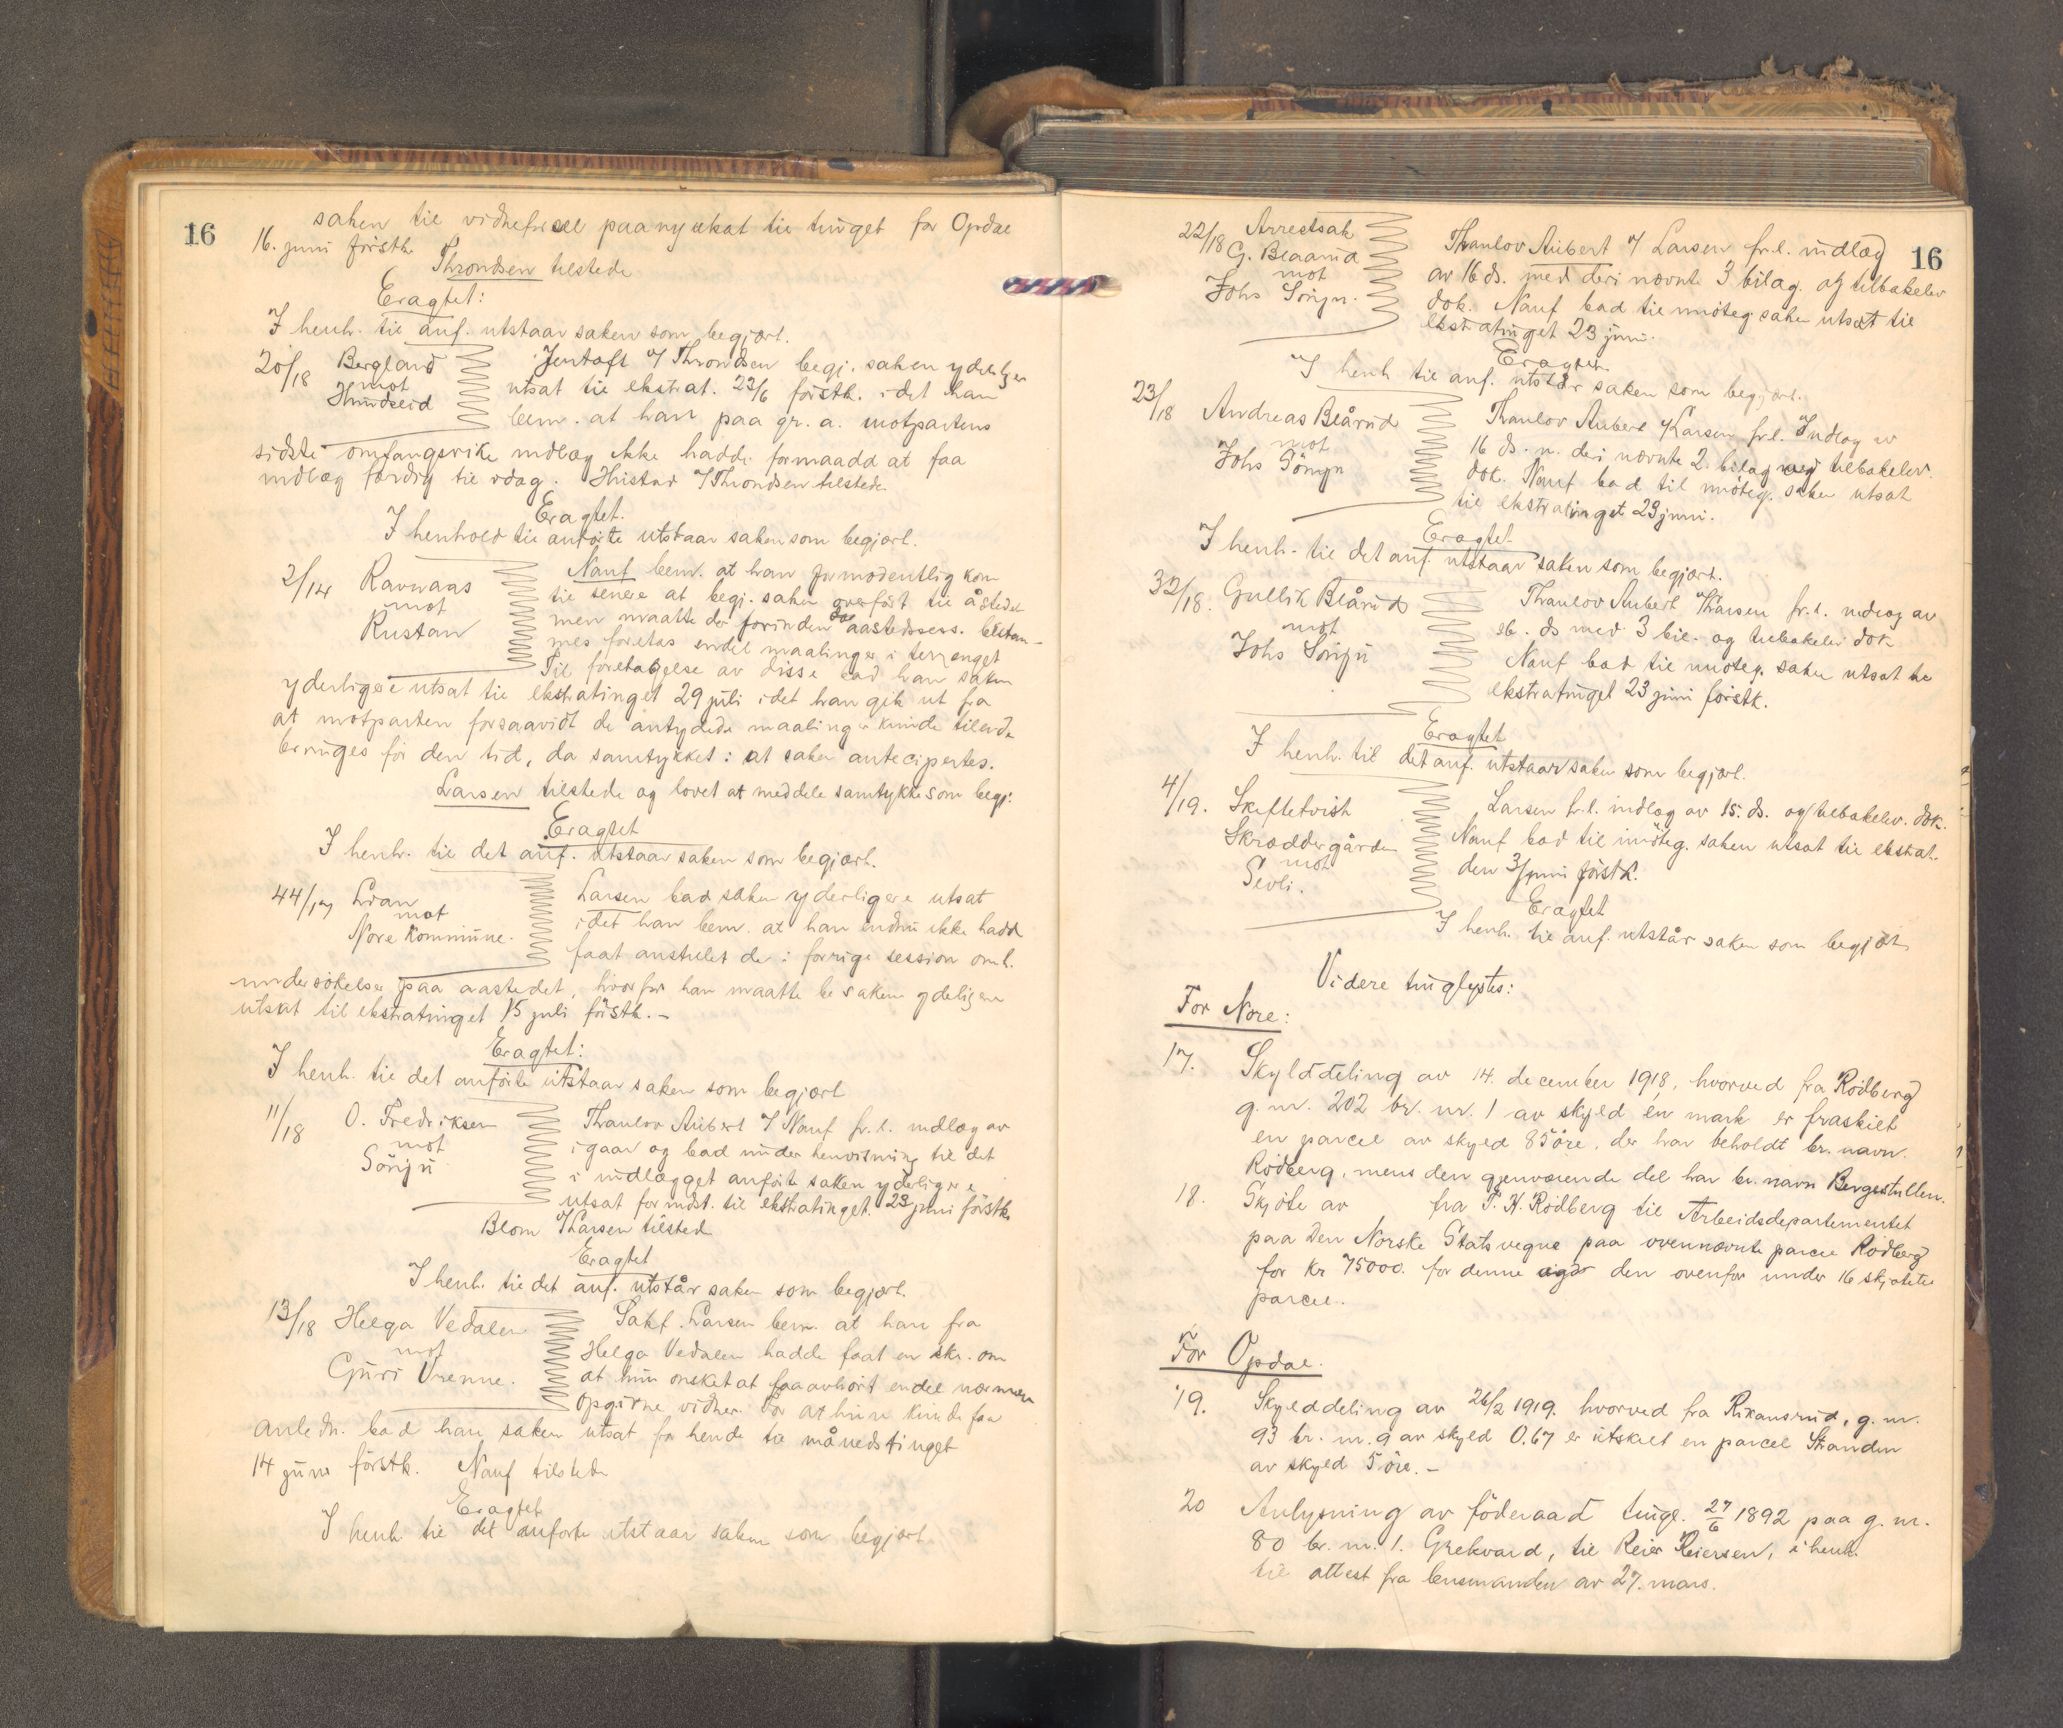 16
saken til vidneførsel paany utsat til tinget for Opdal
16. juni førstk.
Throndsen tilstede
Eragtet:
I henh. til anf. utstaar saken som begjært.
20/18 Bergland mot Hundseid
Jentoft f/ Throndsen begj. saken yderliger
utsat til ekstrat. 23/6 førstk. idet han
bem. at han paa gr. a. motpartens
sidste omfangsrike indlæg ikke hadde formaadd at faa
indlæg færdig til idag. f/ Throndsen tilstede
Eragtet.
I henhold til anførte utstaar saken som begjært.
2/14 Ravnaas mot Rustan
Nauf bem. at han formodentlig kom
til senere at begj. saken overført til åstedet
men maatte der forinden aastedssess. bestem-
mes foretas endel maalinger i terrænget
Til foretagelse av disse bad han saken
yderligere utsat til ekstratinget 29 juli idet han gik ut fra
at motparten forsaavidt de antydede maalinger kunde tilende
bringes før den tid, da samtykket i at saken antecipertes.
Larsen tilstede og lovet at meddele samtykke som begj.
Eragtet
I henh. til det anf. utstaar saken som begjært.
44/17 Lian mot Nore Kommune.
Larsen bad saken yderligere utsat
idet han bem. at han endnu ikke hadde
faat anstillet de i forrige session omh.
undersøkelser paa aastedet, hvorfor han maatte be saken ydeligere
utsat til ekstratinget 15 juli førstk. -
Eragtet:
I henh. til det anførte utstaar saken som begjært
11/18 O. Fredriksen mot Sönju
Thaulov Aubert f/ Nauf fr. l. indlæg av
igaar og bad under henvisning til det
i indlægget anførte saken yderligere
utsat for indst. til ekstratinget 23 juni førstk.
Blom f/ Larsen tilstede
Eragtet
I henh. til det anf. utstår saken som begjært.
13/18 Helga Vedalen mot Guri Vrenne.
Sakf. Larsen bem. at han fra
Helga Vedalen hadde faat en skr. om
at hun ønsket at faa avhørt endel nærmere
opgivne vidner. For at hun kunde faa
anledn. bad han saken utsat for hende til månedstinget
14 juni førstk. Nauf tilstede
Eragtet
I henh til det anførte utstaar saken som begjært.
16
22/18 Arrestsak G. Blaarud mot Johs Sönju.
Thaulov Aubert f/ Larsen fr. l. indlæg
av 16 ds. med deri nævnte 3 bilag. og tilbakelev
dok. Nauf bad til imøteg. saken utsat til
ekstratinget 23 juni.
Eragtet
I henh til anf. utstår saken som begjært.
23/18 Andreas Blårud mot Johs Sönju
Thaulov Aubert f/ Larsen fr. l. Indlæg av
16 ds. m. deri nævnte 2. bilag og tilbakelev.
dok. Nauf bad til imøteg. saken utsat
til ekstratinget 23 juni.
Eragtet
I henh. til det anf. utstaar saken som begjært.
32/18. Gullik Blårud mot Johs Sönju
Thaulov Aubert f/ Larsen fr. l. indlæg av
16. ds med 3 bil. og tilbakelev dok
Nauf bad til imøteg. saken utsat til
ekstratinget 23 juni førstk.
Eragtet
I henh. til det anf. utstaar saken som begjært.
4/19. Skiftetvist Skræddergården mot Sevli.
Larsen fr. l. indlæg av 15. ds. og tilbakelev. dok.
Nauf bad til imøteg. saken utsat til ekstrat.
den 3/juni førstk.
Eragtet
I henh. til anf. utstår saken som begjært
Videre tinglystes:
For Nore:
17. Skylddeling av 14. december 1918, hvorved fra Rödberg
g. nr. 202 br. nr. 1 av skyld én mark er fraskilt
en parcel av skyld 85 øre, der har beholdt br. navn.
Rödberg, mens den gjenværende del har br. navn Bergestullen.
18. Skjøte av fra T. K. Rödberg til Arbeidsdepartementet
paa den Norske Stats vegne paa ovennævnte parcel Rödberg
for kr 75000. for denne og den ovenfor under 16 skjøtete
parcel.
For Opdal.
19. Skylddeling av 26/2 1919. hvorved fra Rikansrud, g. nr.
93 br. nr. 9 av skyld 0.67 er utskilt en parcel Stranden
av skyld 5 øre. -
20 Avlysning av föderaad tingl. 27/6 1892 paa g. nr.
80 br. nr. 1. Grekvard, til Reier Reiersen, i henh.
til attest fra lensmanden av 27. mars.